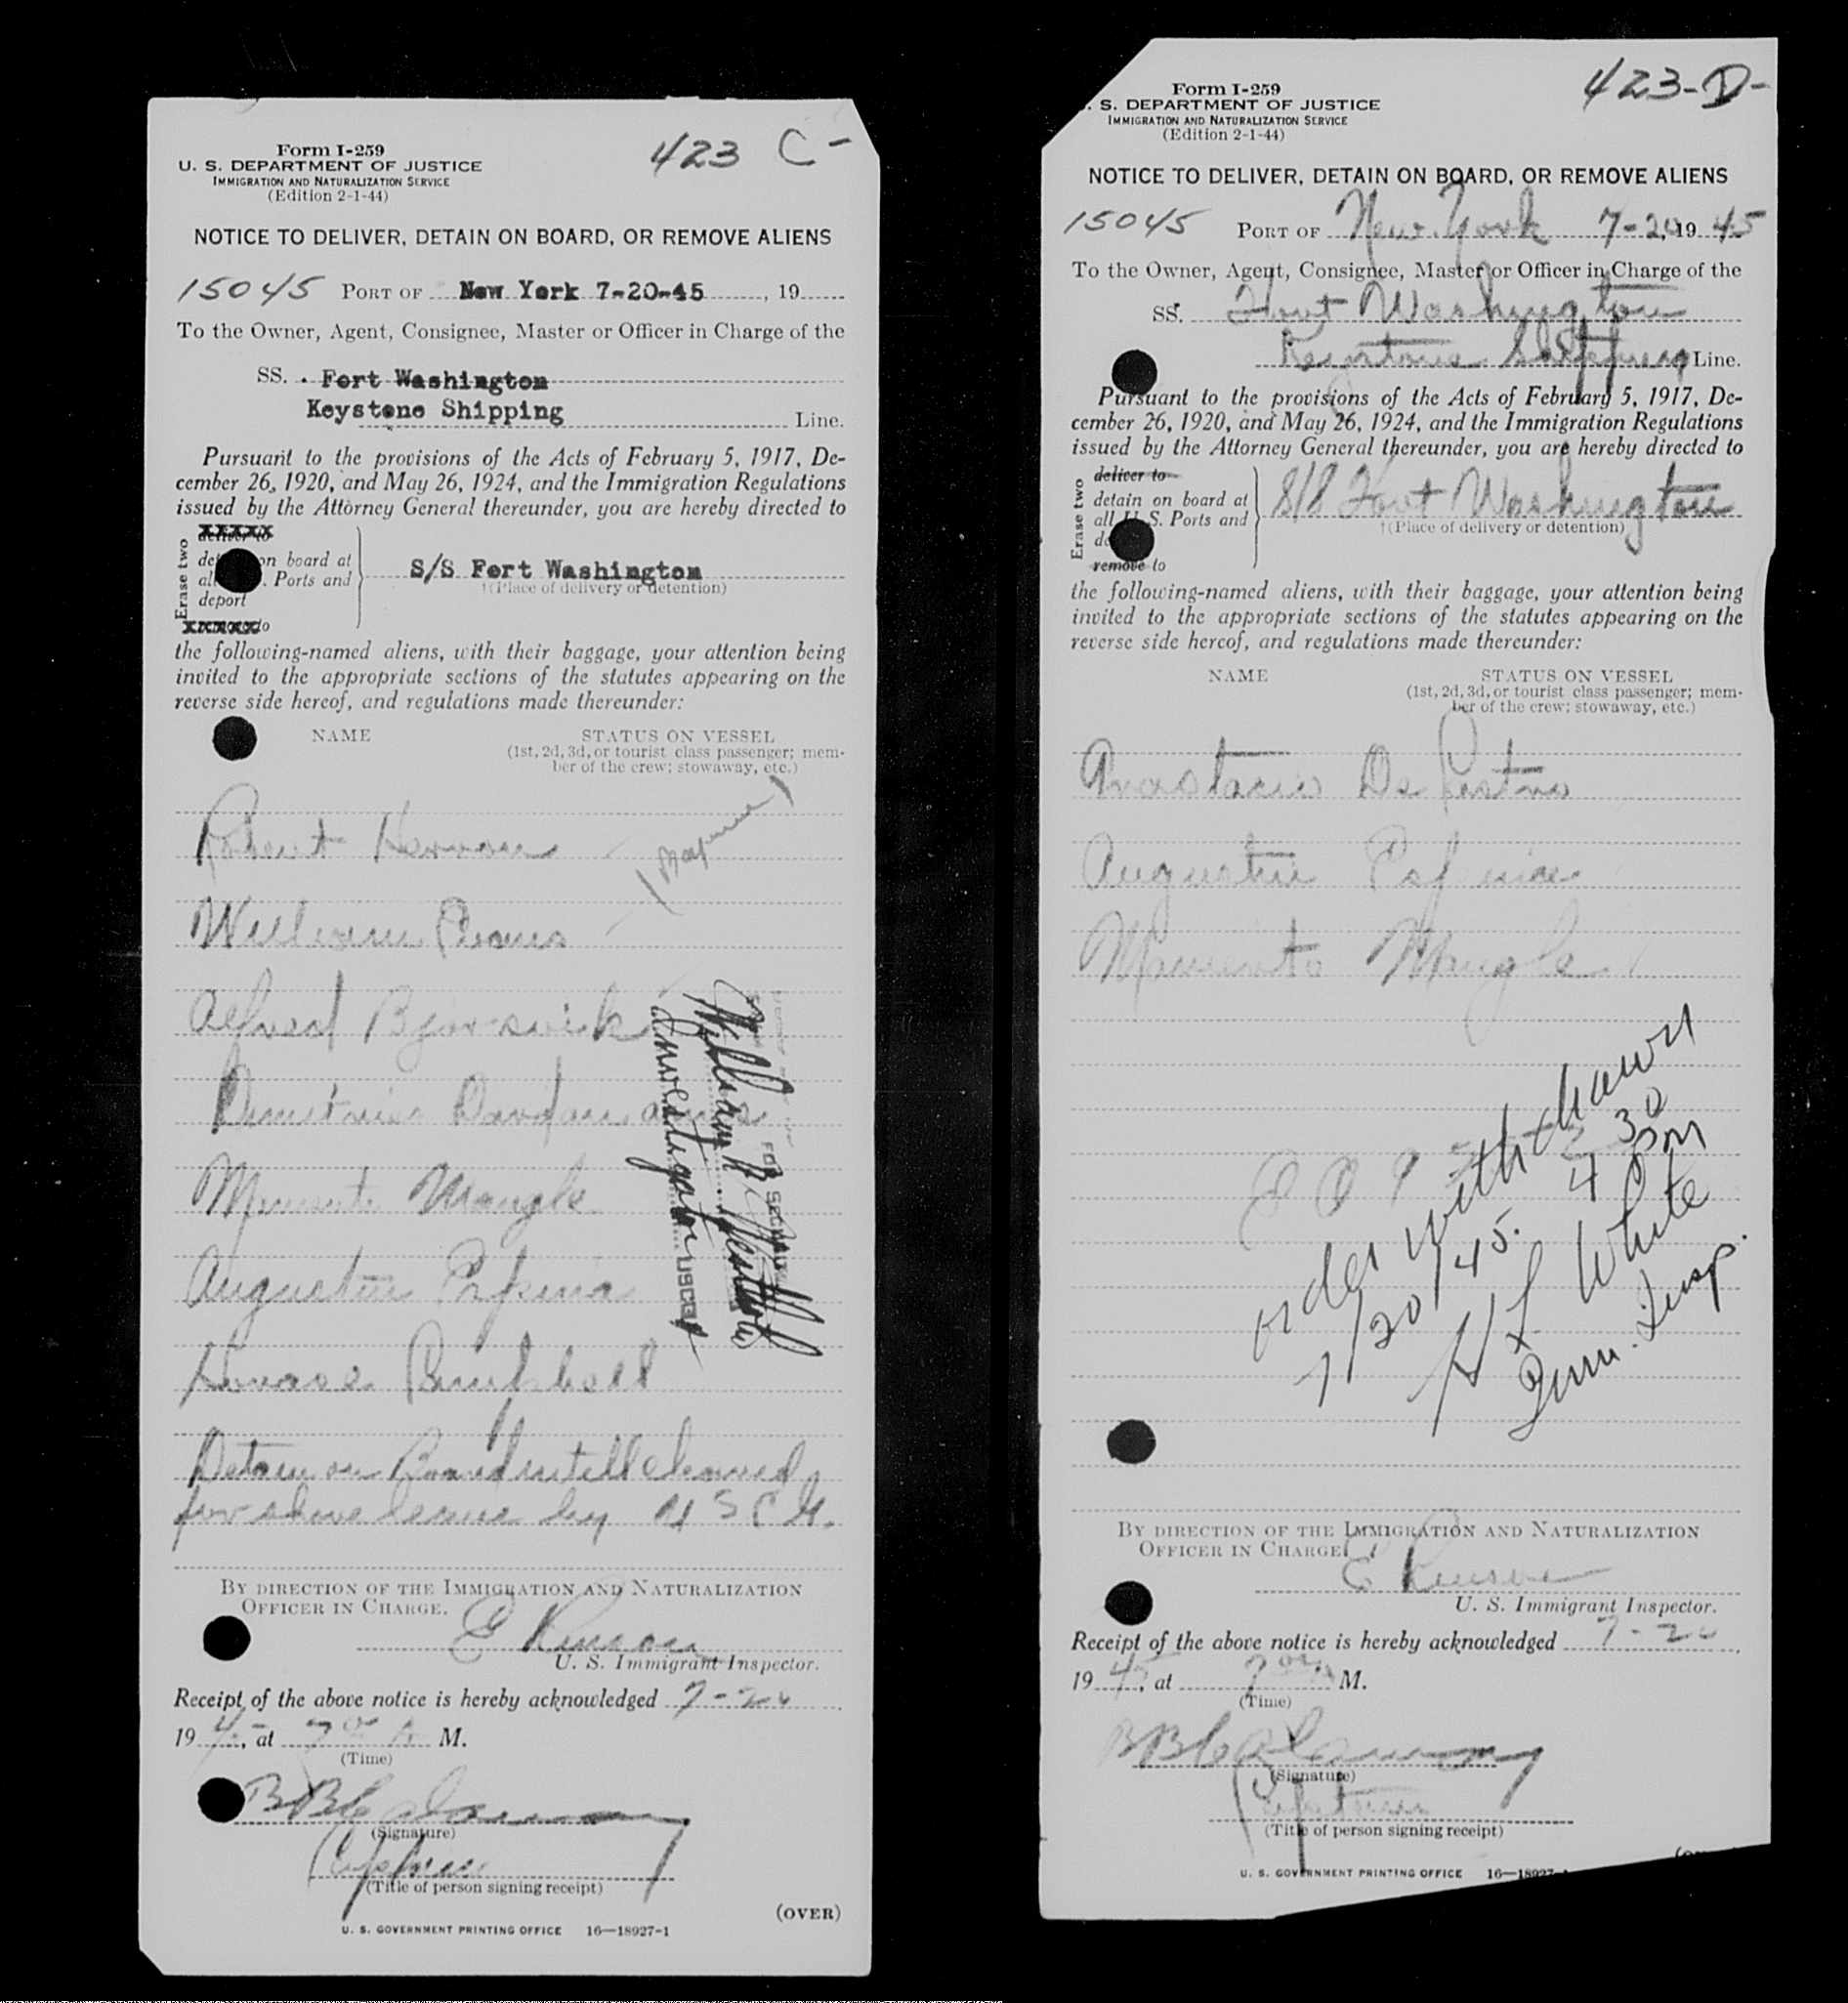 423 C-
Form I-259
U. S. DEPARTMENT OF JUSTICE
IMMIGRATION AND NATURALIZATION SERVICE
(Edition 2-1-44)
NOTICE TO DELIVER, DETAIN ON BOARD, OR REMOVE ALIENS
15045 PORT OF New York 7-20-45, 19
To the Owner, Agent, Consignee, Master or Officer in Charge of the
SS. Fort Washington
Keystone Shipping Line.
Pursuant to the provisions of the Acts of February 5, 1917, De-
cember 26, 1920, and May 26, 1924, and the Immigration Regulations
issued by the Attorney General thereunder, you are hereby directed to
Erase two
deliver to
on board at
Ports and
deport
to
S/S Fort Washington
†(Place of delivery or detention)
the following-named aliens, with their baggage, your attention being
invited to the appropriate sections of the statutes appearing on the
reverse side hereof, and regulations made thereunder:
NAME STATUS ON VESSEL
(1st, 2d, 3d, or tourist class passenger; mem-
ber of the crew; stowaway, etc.)
Robert
William Evans
Alfred
Mangle
Augustin
Horace Campbell
Detain on Board untill cleared
for shore leave by U S C G.
William
Investigator USCGR
BY DIRECTION OF THE IMMIGRATION AND NATURALIZATION
OFFICER IN CHARGE.
E
U. S. Immigrant Inspector.
Receipt of the above notice is hereby acknowledged 7-20
1945, at 7 00 A M.
(Time)
B B Calaway
(Signature)
Captain
(Title of person signing receipt)
(OVER)
U. S. GOVERNMENT PRINTING OFFICE 16—18927-1
423-D-
Form I-259
. S. DEPARTMENT OF JUSTICE
IMMIGRATION AND NATURALIZATION SERVICE
(Edition 2-1-44)
NOTICE TO DELIVER, DETAIN ON BOARD, OR REMOVE ALIENS
15045 PORT OF New York 7-20, 19 45
To the Owner, Agent, Consignee, Master or Officer in Charge of the
SS. Fort Washington
Keystone Shipping Line.
Pursuant to the provisions of the Acts of February 5, 1917, De-
cember 26, 1920, and May 26, 1924, and the Immigration Regulations
issued by the Attorney General thereunder, you are hereby directed to
Erase two
deliver to
detain on board at
all U. S. Ports and
remove to
S/S Fort Washington
†(Place of delivery or detention)
the following-named aliens, with their baggage, your attention being
invited to the appropriate sections of the statutes appearing on the
reverse side hereof, and regulations made thereunder:
NAME STATUS ON VESSEL
(1st, 2d, 3d, or tourist class passenger; mem-
ber of the crew; stowaway, etc.)
Anastacio De
Augustin
Mangle
order withdrawn
7/20/45. 4 30 PM
H L White
Imm. Insp.
BY DIRECTION OF THE IMMIGRATION AND NATURALIZATION
OFFICER IN CHARGE.
E
U. S. Immigrant Inspector.
Receipt of the above notice is hereby acknowledged 7-20
1945, at 7 00 A M.
(Time)
B B Calaway
(Signature)
Captain
(Title of person signing receipt)
U. S. GOVERNMENT PRINTING OFFICE 16—18927-1